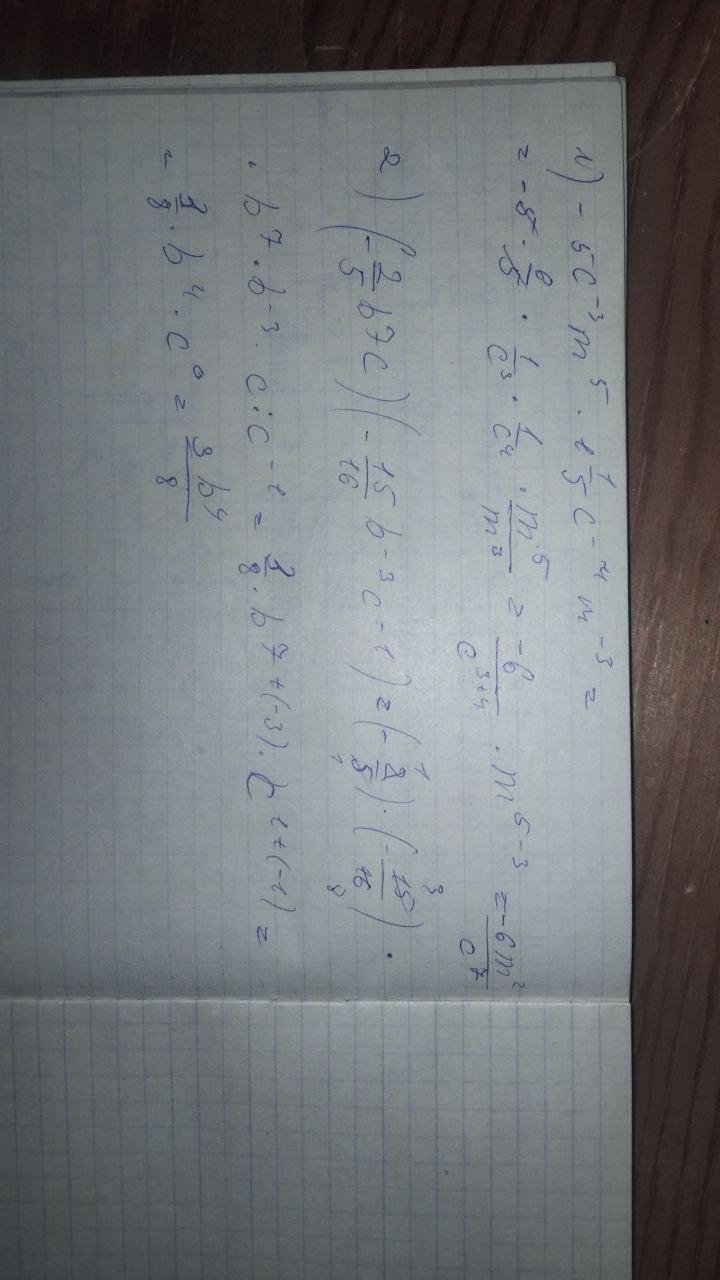 1) - 5c⁻³m⁵ · 1 1/5 c⁻⁴ m⁻³ =
= - 5 · 6/5 · 1/c³ · 1/c⁴ · m⁵/m³ = -6/c³⁺⁴ · m⁵⁻³ = -6m²/c⁷
2) (-2/5 b⁷c)(-15/16 b⁻³c⁻¹) = (-2/5) · (-15/16) ·
· b⁷ · b⁻³ · c · c⁻¹ = 3/8 · b⁷⁺⁽⁻³⁾ · c¹⁺⁽⁻¹⁾ =
= 3/8 · b⁴ · c⁰ = 3b⁴/8